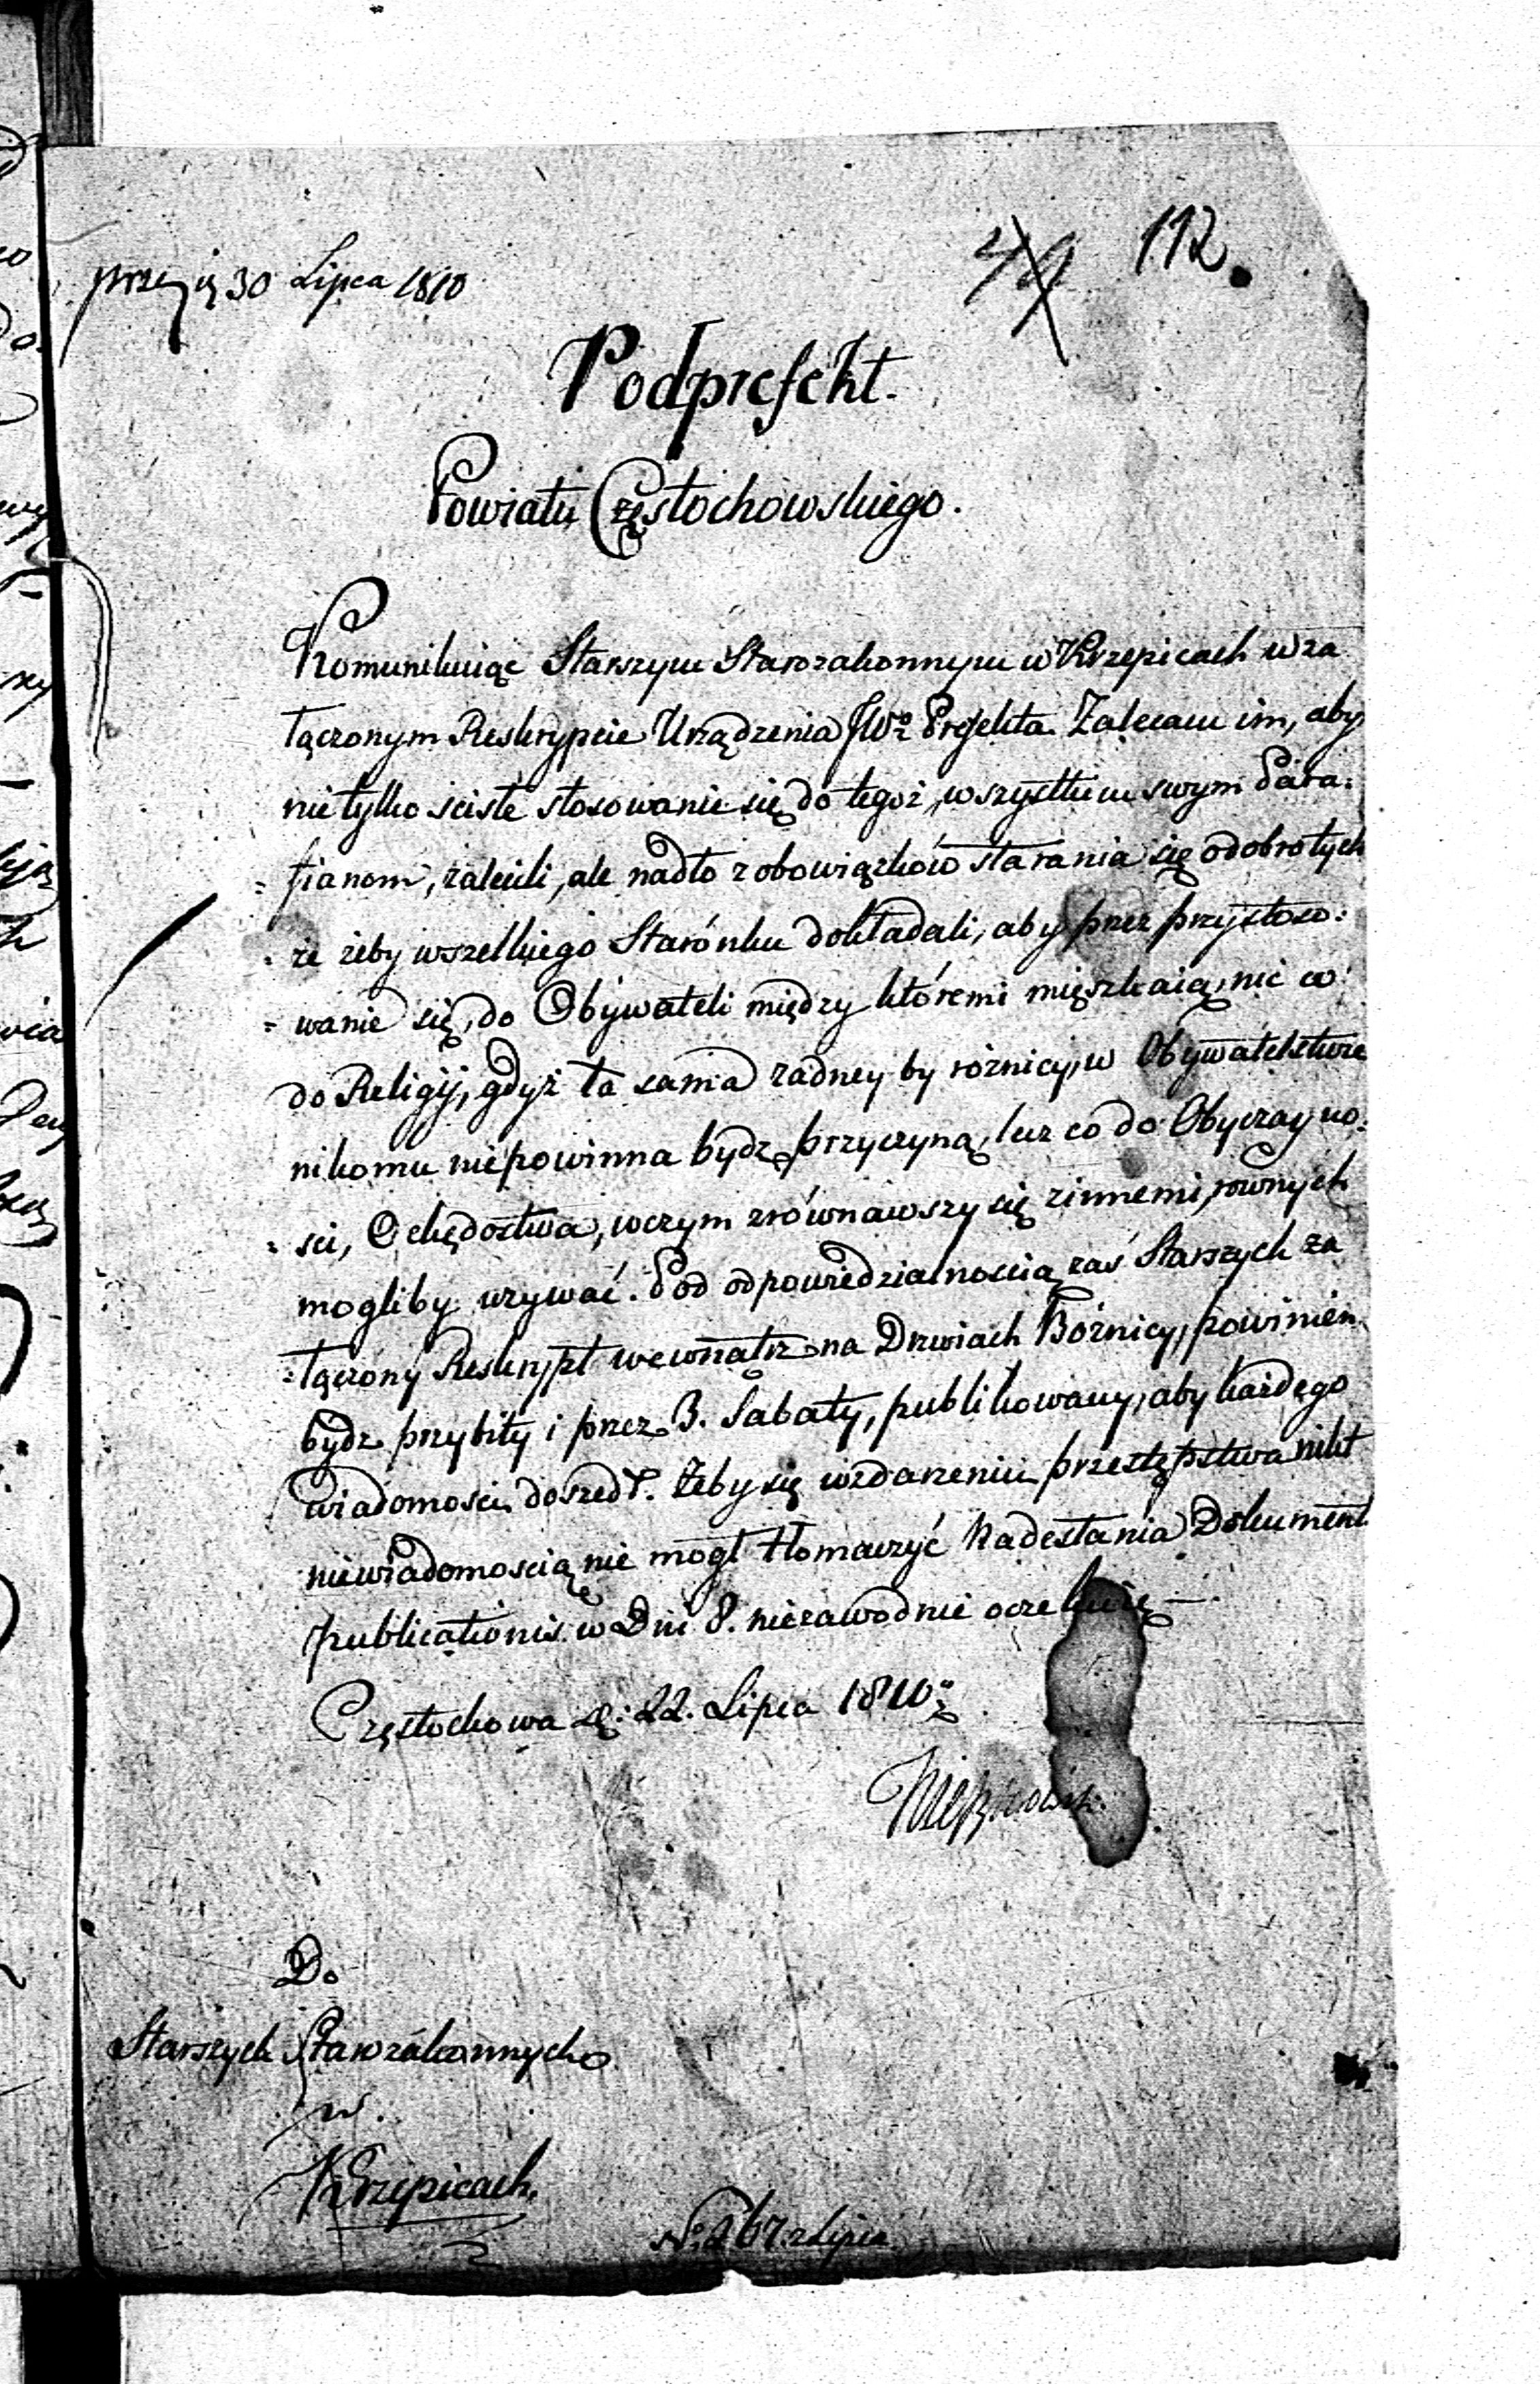 30 Lipca 1810
112.
Podprefekt.
Powiatu Częstochowskiego.
Komunikuiąc Starszym Starozakonnym w Krzepicach w za
łączonym Reskrypcie Urządzenia JWo Prefekta Zalecam im, aby
nie tylko sciste stosowanie się do tegoż, wszystkim swym Para:
: fianom, zalecili, ale nadto z obowiązków starania się o dobro tych
: że żeby wszelkiego Starónku dokładali, aby przez przystoso:
: wanie się, do Obywateli między któremi mięszkaią, nic co
do Religij, gdyż ta sama żadney by różnicy, w Obywatelstwie
nikomu niepowinna bydz przyczyną, lecz co do Obyczayno:
: sci, Ochędostwa, w czym zrównawszy się z innemi, rownych
mogliby używać. Pod odpowiedzialnoscią zaś Starszych za
: łączony Reskrypt wewnątrz na Drzwiach Bóżnicy, powinien
bydz przybity i przez 3. Sabaty, publikowany, aby każdego
wiadomosci doszedł. Żeby się w zdarzeniu przestępstwa nikt
niewiadomoscią nie mogł tłomaczyć Nadesłania Dokument
publicationis w Dni 8. niezawodnie oczekuię —
Częstochowa d: 22. Lipca 1810
Do
Starszych Starozakonnych
w.
Krzepicach.
Lipca